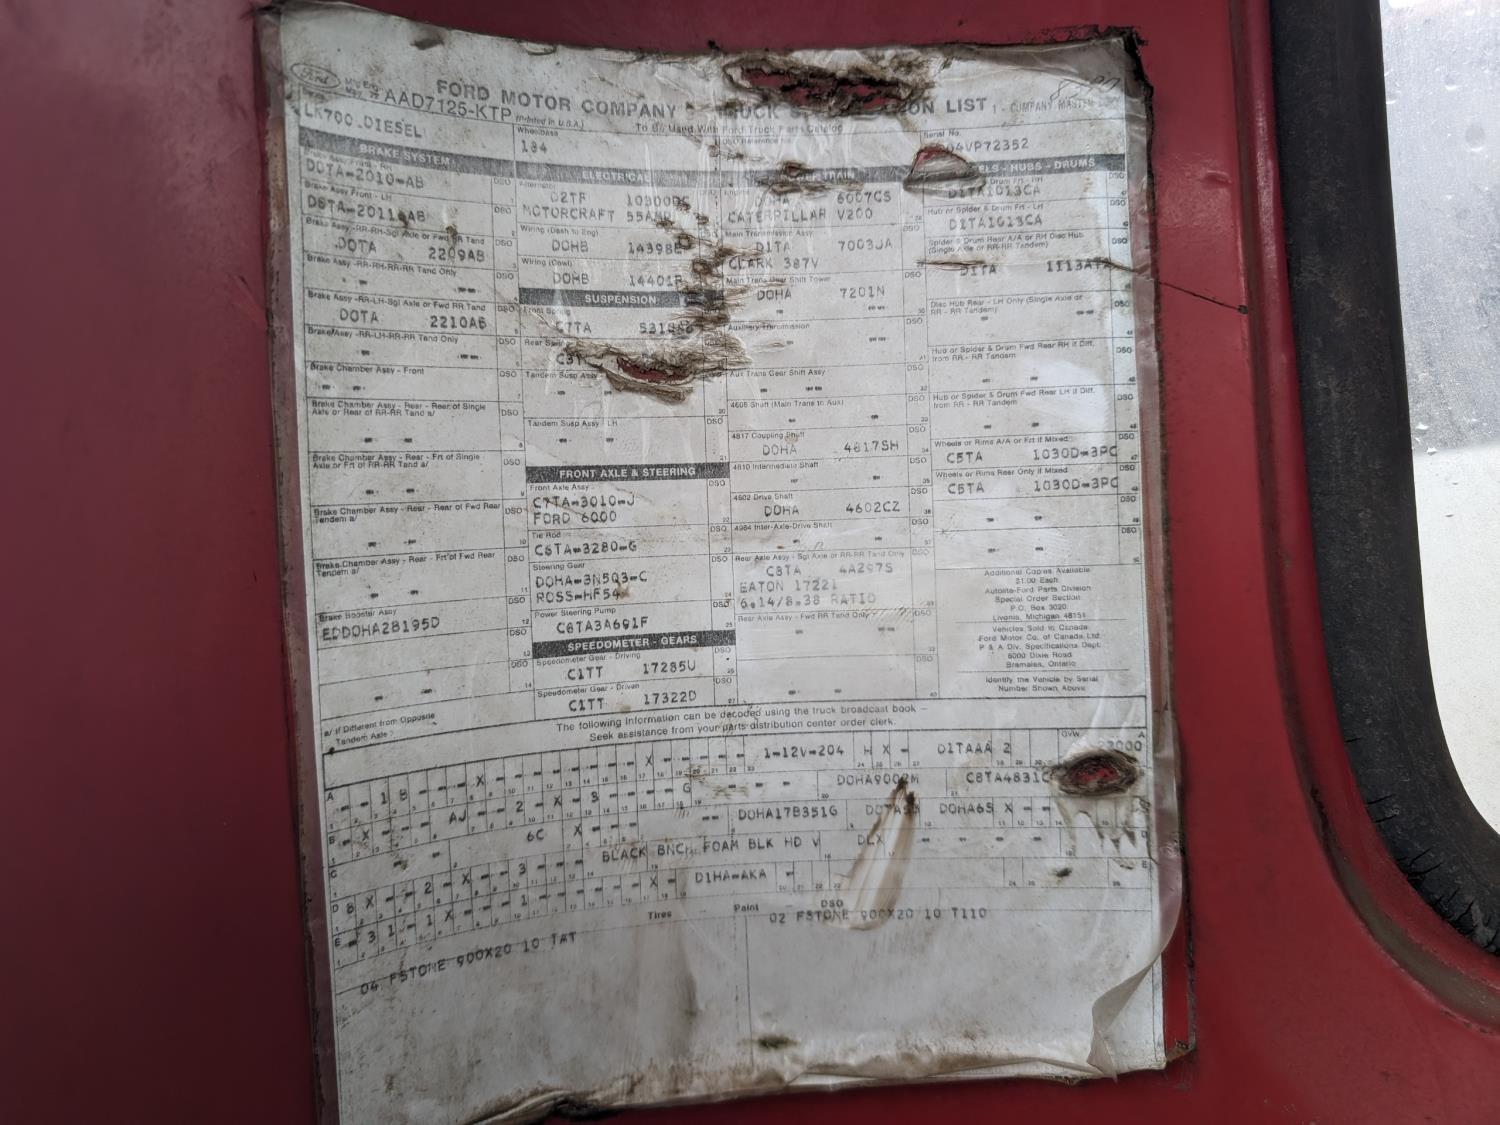 Ford
AAD7125-KTP
FORD MOTOR COMPANY
LIST
COMPANY MASTER
(Printed in U.S.A.)
To Be Used With Ford Truck Parts Catalog
LK700 DIESEL
Wheelbase
184
Serial No.
04VP72352
BRAKE SYSTEM
DOTA-2010-AB
Brake Assy Front - LH
DSO
Brake Assy -RR-RH-Sgl Axle or Fwd RR Tand
DOTA 2209AB
Brake Assy -RR-RH-RR-RR Tand Only
Brake Assy -RR-LH-Sgl Axle or Fwd RR Tand
DOTA 2210AB
Brake Assy -RR-LH-RR-RR Tand Only
Brake Chamber Assy - Front
Brake Chamber Assy - Rear - Rear of Single
Axle or Rear of RR-RR Tand a/
Brake Chamber Assy - Rear - Frt of Single
Axle or Frt of RR-RR Tand a/
Brake Chamber Assy - Rear - Rear of Fwd Rear
Tandem a/
Brake Chamber Assy - Rear - Frt of Fwd Rear
Tandem a/
Brake Booster Assy
EDDOHA2B195D
a/ If Different from Opposite
Tandem Axle
ELECTRICAL
Alternator
D2TF 10300
MOTORCRAFT 55AMP
Wiring (Dash to Eng)
DOHB 14398
Wiring (Cowl)
DOHB 14401
SUSPENSION
Front Spring
C7TA
Tandem Susp Assy
Tandem Susp Assy - LH
FRONT AXLE & STEERING
Front Axle Assy
C7TA-3010-J
FORD 6000
Tie Rod
C6TA-3280-G
Steering Gear
DOHA-3N503-C
ROSS-HF54
Power Steering Pump
C6TA3A691F
SPEEDOMETER - GEARS
Speedometer Gear - Driving
C1TT 17285U
Speedometer Gear - Driven
C1TT 17322D
DOHA 6007CS
CATERPILLAR V200
Main Transmission Assy
D1TA 7003JA
CLARK 387V
Main Trans Gear Shift Tower
DOHA 7201N
Auxiliary Transmission
Aux Trans Gear Shift Assy
4605 Shaft (Main Trans to Aux)
4817 Coupling Shaft
DOHA 4817SH
4810 Intermediate Shaft
4602 Drive Shaft
DOHA 4602CZ
4984 Inter-Axle-Drive Shaft
Rear Axle Assy - Sgl Axle or RR-RR Tand Only
C8TA 4A297S
EATON 17221
6.14/8.38 RATIO
Rear Axle Assy - Fwd RR Tand Only
HUBS - DRUMS
D1TA1013CA
Hub or Spider & Drum Frt - LH
D1TA1013CA
Spider & Drum Rear A/A or RH Disc Hub
(Single Axle or RR-RR Tandem)
D1TA
Disc Hub Rear - LH Only (Single Axle or
RR - RR Tandem)
Hub or Spider & Drum Fwd Rear RH if Diff.
from RR - RR Tandem
Hub or Spider & Drum Fwd Rear LH if Diff.
from RR - RR Tandem
Wheels or Rims A/A or Frt if Mixed
C5TA 1030D-3PC
Wheels or Rims Rear Only if Mixed
C5TA 1030D-3PC
Additional Copies Available
Autolite-Ford Parts Division
Special Order Section
P.O. Box 3020
Livonia, Michigan 48151
Vehicles Sold in Canada
Ford Motor Co. of Canada Ltd.
P & A Div. Specifications Dept.
8000 Dixie Road
Bramalea, Ontario
Identify the Vehicle by Serial
Number Shown Above
The following information can be decoded using the truck broadcast book –
Seek assistance from your parts distribution center order clerk.
A - - 1 B - - - X - - - - - - - - X - - - - - 1-12V-204 H X - D1TAAA 2 GVW
B - X - - - - AJ - - 2 - X - 3 - - - - G - - - - DOHA9002M C8TA4831C
C 6C X - - - -- DOHA17B351G DOHA6S X - -
D 8 X - - 2 - X - - 3 - - - BLACK BNCH FOAM BLK HD V DLX
E - 31 - 1 X - - - 1 - - - - - - X - D1HA-AKA
Tires Paint DSO
04 FSTONE 900X20 10 TAT
02 FSTONE 900X20 10 T110